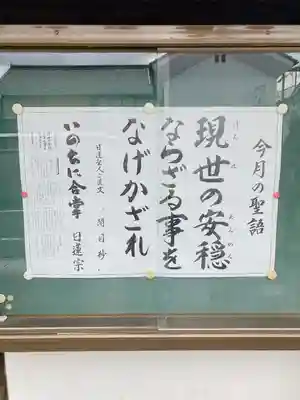 今月の聖語
現世の安穏
げんせ あんのん
ならざる事を
なげかざれ
日蓮聖人ご遺文 『開目抄』
いのちに合掌 日蓮宗